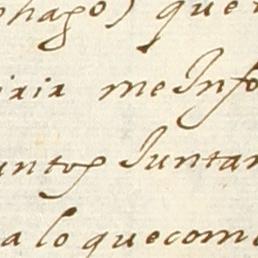 phago) que
iria me Info
untos Juntam
a lo que com